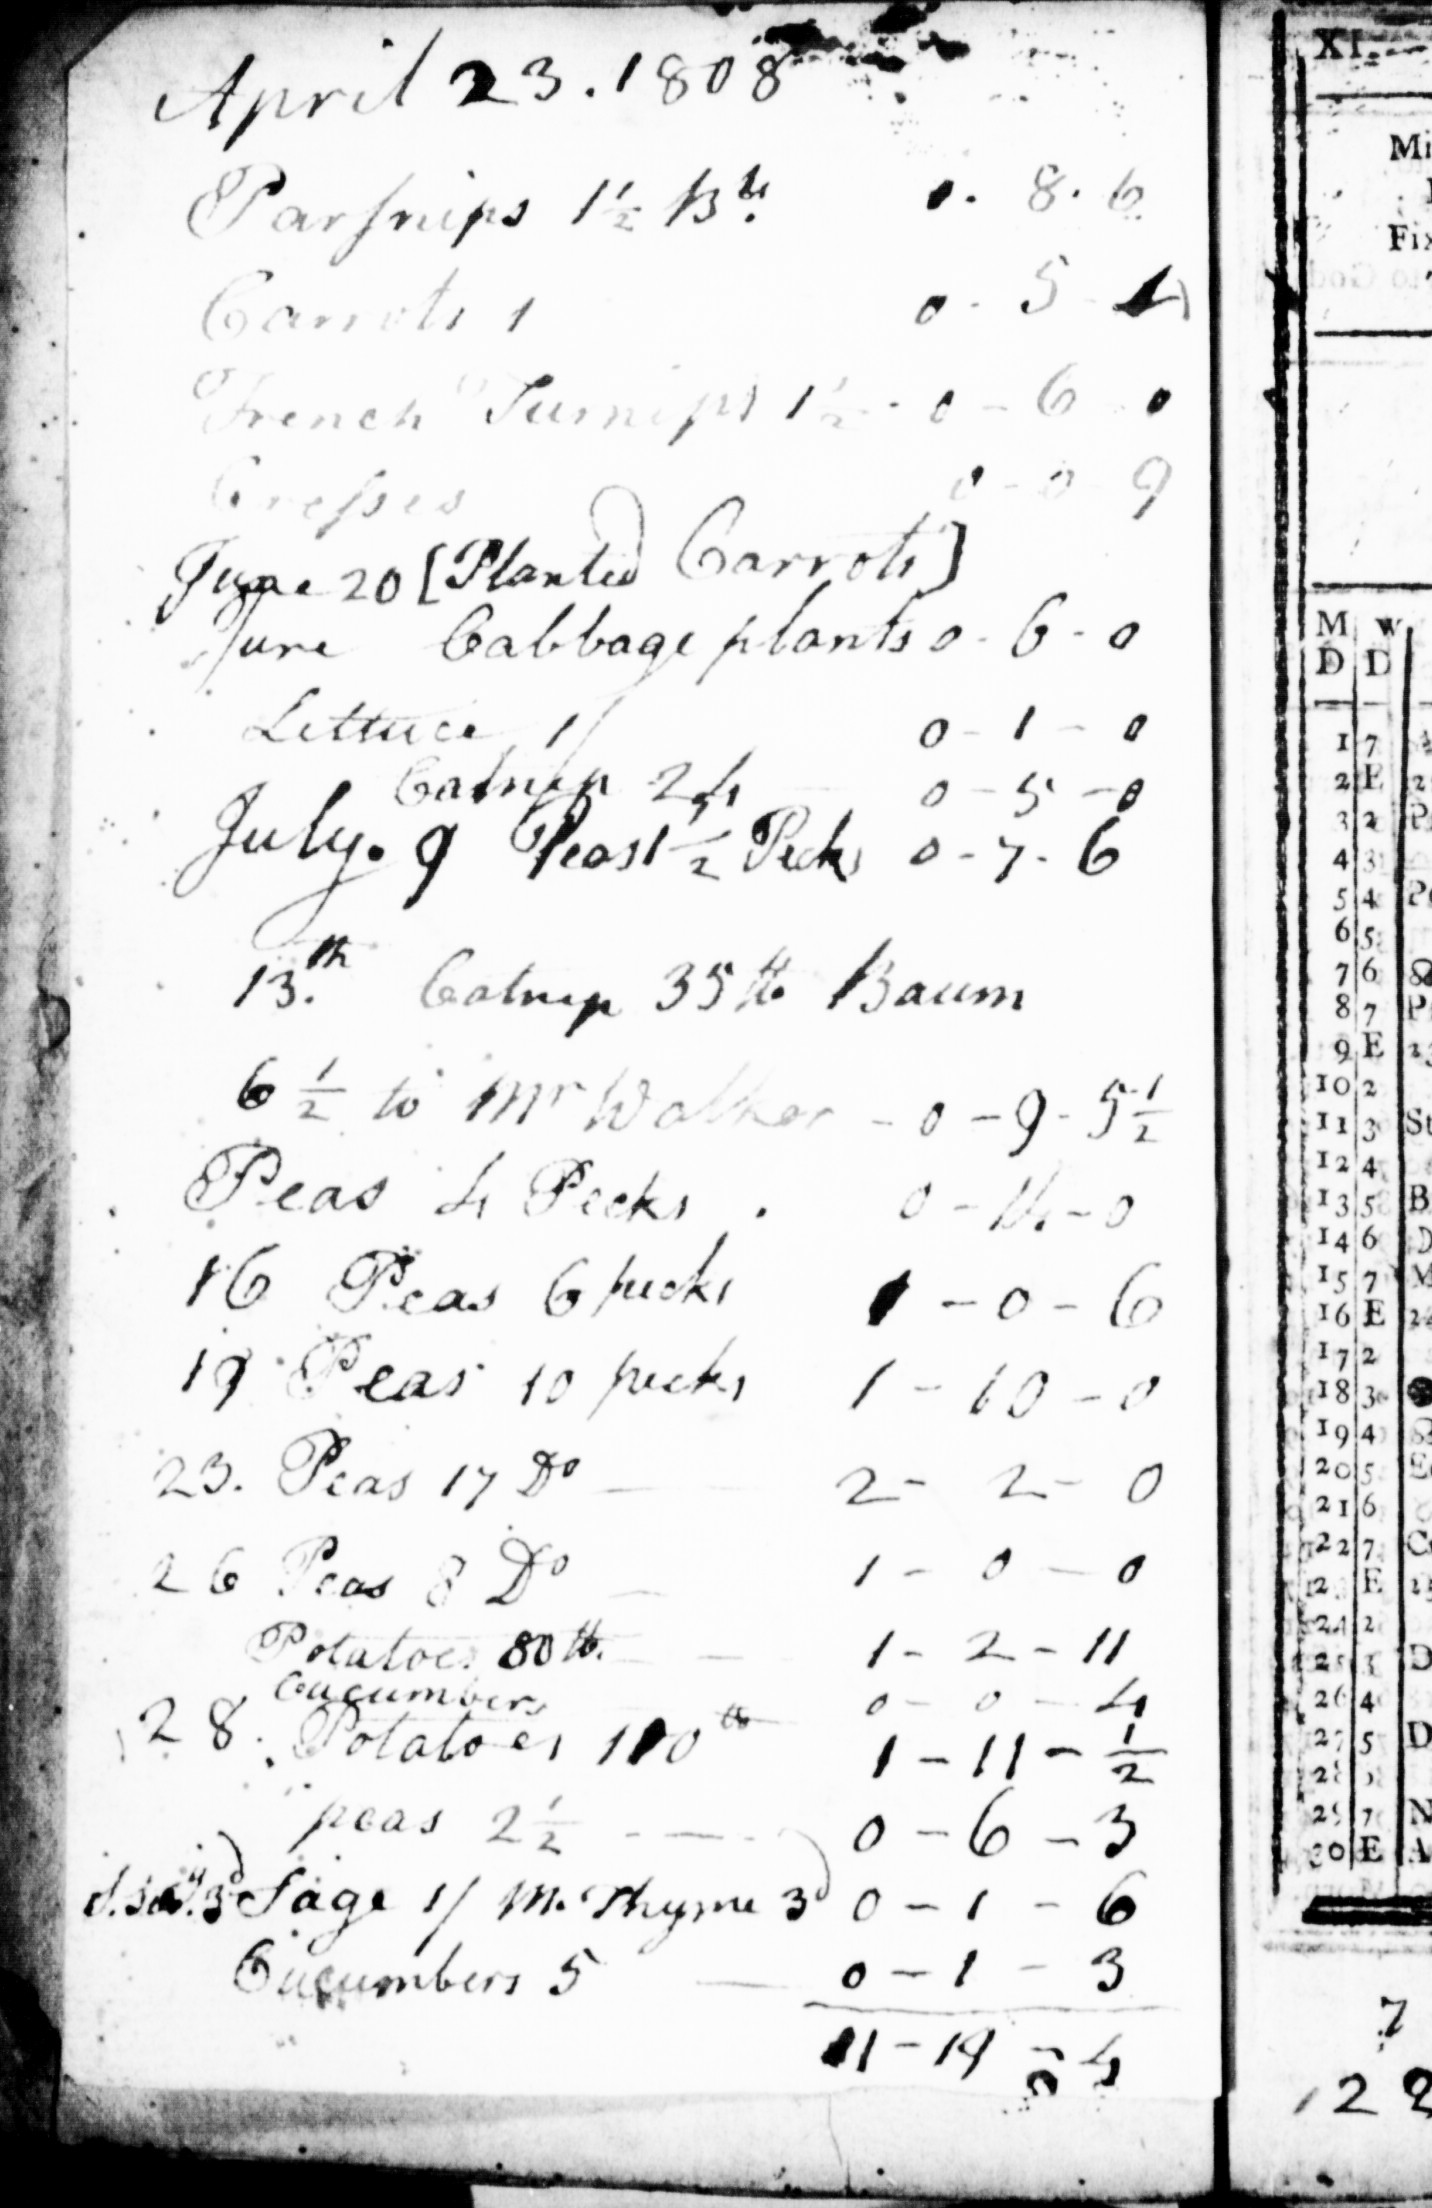 April 23. 1808
Parsnips 1½ Bls. 0. 8. 6
Carrots 1 0 - 5 - 4
French Turnips 1½ - 0 - 6 0
Cresses 0 - 0 9
June 20 [Planted Carrots]
June Cabbage plants 0 - 6 - 0
Lettuce 1/ 0 - 1 - 0
Catnip 24 0 - 5 - 0
July. 9 Peas 1½ Pecks 0 - 7 - 6
13.th Catnip 35 lb Baum
6½ to Mr Walker - 0 - 9 - 5½
Peas 4 Pecks . 0 - 14 - 0
16 Peas 6 pecks 1 - 0 - 6
19 Peas 10 pecks 1 - 10 - 0
23. Peas 17 Do 2 - 2 - 0
26 Peas 8 Do 1 - 0 - 0
Potatoes 80 lb. 1 - 2 - 11
Cucumbers 0 - 0 - 4
28. Potatoes 110 lb 1 - 11 - ½
peas 2½ 0 - 6 - 3
Sage 1/ M. Thyme 3d 0 - 1 - 6
Cucumbers 5 0 - 1 - 3
11 - 19 - 4
XI.
Mi
Fix
M W
D D
1 7
2 E
3 2
4 3
5 4
6 5
7 6
8 7
9 E
10 2
11 3
12 4
13 5 B
14 6 D
15 7 M
16 E
17 2
18 3
19 4
20 5
21 6
22 7
23 E
24 2
25 3 D
26 4
27 5 D
28
29 7 N
30 E A
7
122